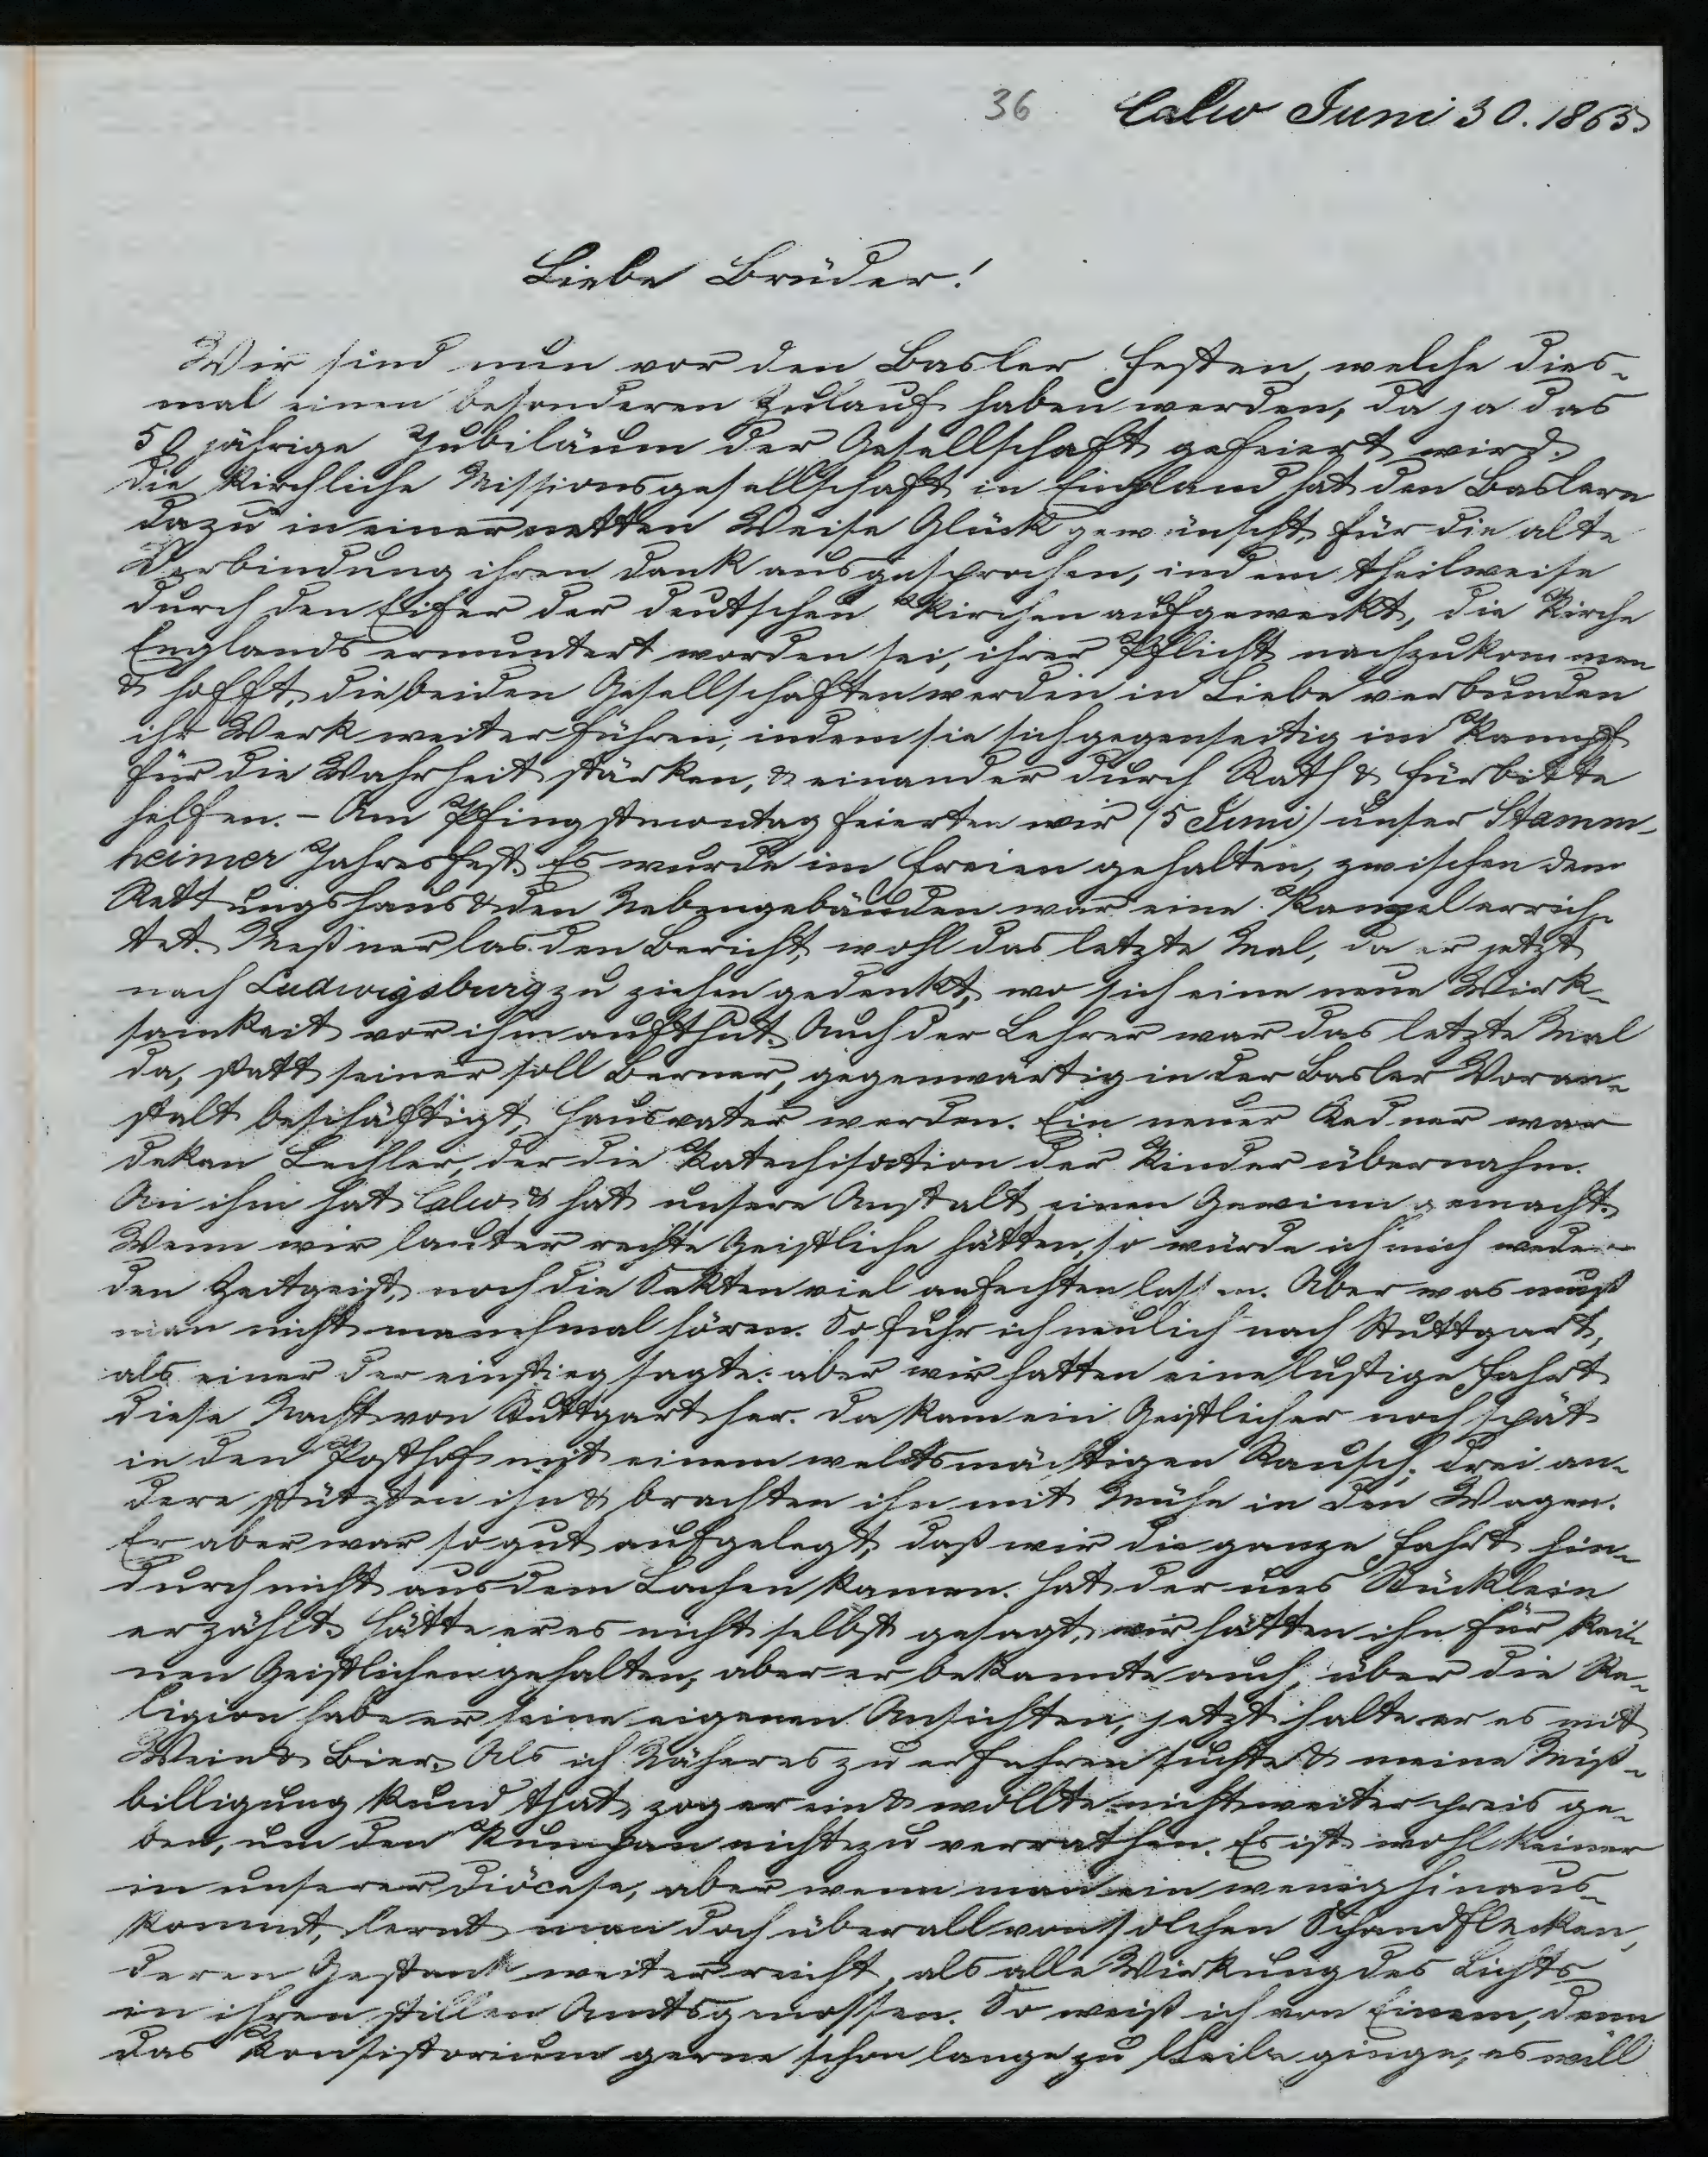 36 Calw Juni 30. 1865.
Liebe Brüder!
Wir sind nun vor den Basler Festen, welche dies-
mal einen besonderen Zulauf haben werden, da ja das
50 jährige Jubiläum der Gesellschaft gefeiert wird.
Die Kirchliche Missionsgesellschaft in England hat den Baslern
dazu in einer netten Weise Glück gewünscht, für die alte
Verbindung ihren Dank ausgesprochen, indem theilweise
durch den Eifer der deutschen Kirchen aufgeweckt, die Kirche
Englands ermuntert worden sei, ihrer Pflicht nachzukommen
& hofft, die beiden Gesellschaften werden in Liebe verbunden
ihr Werk weiter führen, indem sie sich gegenseitig im Kampf
für die Wahrheit stärken, & einander durch Rath & Fürbitte
helfen. - Am Pfingstmontag feierten wir (5 Juni) unser Stamm-
heimer Jahresfest. Es wurde im Freien gehalten, zwischen dem
Rettungshaus & den Nebengebäuden war eine Kanzel errich-
tet. Meßner las den Bericht, wohl das letzte Mal, da er jetzt
nach Ludwigsburg zu ziehen gedenkt, wo sich eine neue Wirk-
samkeit vor ihm aufthut. Auch der Lehrer war das letzte Mal
da, statt seiner soll Berner, gegenwärtig in der Basler Voran-
stalt beschäftigt, Hausvater werden. Ein neuer Redner war
Dekan Lechler, der die Katechisation der Kinder übernahm.
An ihm hat Calw & hat unsere Anstalt einen Gewinn gemacht.
Wenn wir lauter rechte Geistliche hätten, so würde ich mich weder
den Zeitgeist, noch die Sekten viel anfechten lassen. Aber was muß
man nicht manchmal hören. So fuhr ich neulich nach Stuttgart,
als einer der einstieg sagte: aber wir hatten eine lustige Fahrt
diese Nacht von Stuttgart her. Da kam ein Geistlicher noch spät
in den Posthof mit einem weltsmächtigen Rausch; drei an-
dere stützten ihn & brachten ihn mit Mühe in den Wagen.
Er aber war so gut aufgelegt, daß wir die ganze Fahrt hin-
durch nicht aus dem Lachen kamen. Hat der uns Stücklein
erzählt. Hätte er es nicht selbst gesagt, wir hätten ihn für kei-
nen Geistlichen gehalten, aber er bekannte auch, über die Re-
ligion habe er seine eigenen Ansichten, jetzt halte er es mit
Wein & Bier. Als ich Näheres zu erfahren suchte & meine Miß-
billigung kund that, zog er ein & wollte nichts weiter preis ge-
ben, um den Kumpan nicht zu verrathen. Es ist wohl keiner
in unserer Diöcese, aber wenn man ein wenig hinaus-
kommt, lernt man doch überall von solchen Schandflecken,
deren Gestank weiter reicht, als alle Wirkung des Lichts
in ihren stillen Amtsgenossen. So weiß ich von Einem, dem
das Konsistorium gerne schon lange zu Leibe ginge, es will